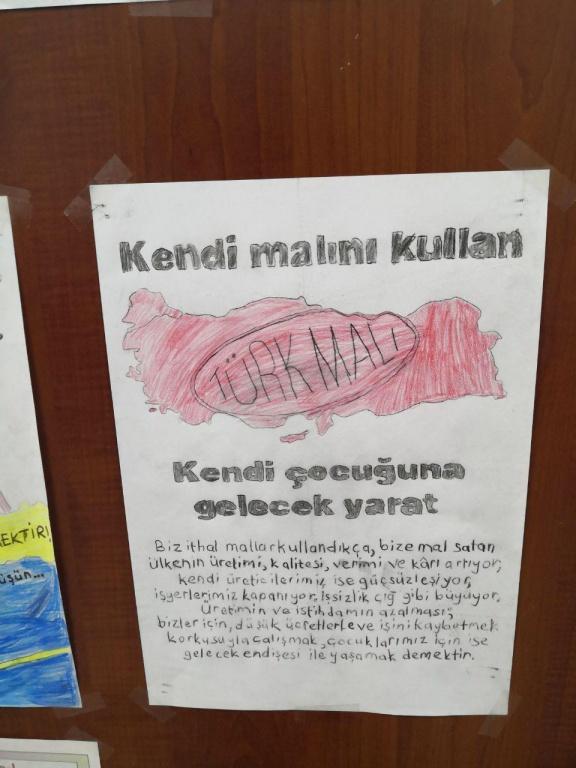 Kendi malını kullan
TÜRK MALI
Kendi çocuğuna
gelecek yarat
Biz ithal mallar kullandıkça, bize mal satan
ülkenin üretimi, kalitesi, verimi ve kârı artıyor,
kendi üreticilerimiz ise güçsüzleşiyor,
işyerlerimiz kapanıyor, işsizlik çığ gibi büyüyor.
Üretimin ve istihdamın azalması;
bizler için, düşük ücretlerle ve işini kaybetmek
korkusuyla çalışmak, çocuklarımız için ise
gelecek endişesi ile yaşamak demektir.
EKTİR!